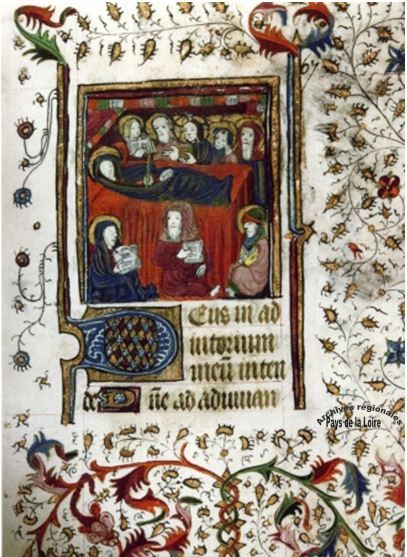 Eus in ad
iutorium
meũ inten
de Dñe ad adiuuan
Archives régionales
Pays de la Loire